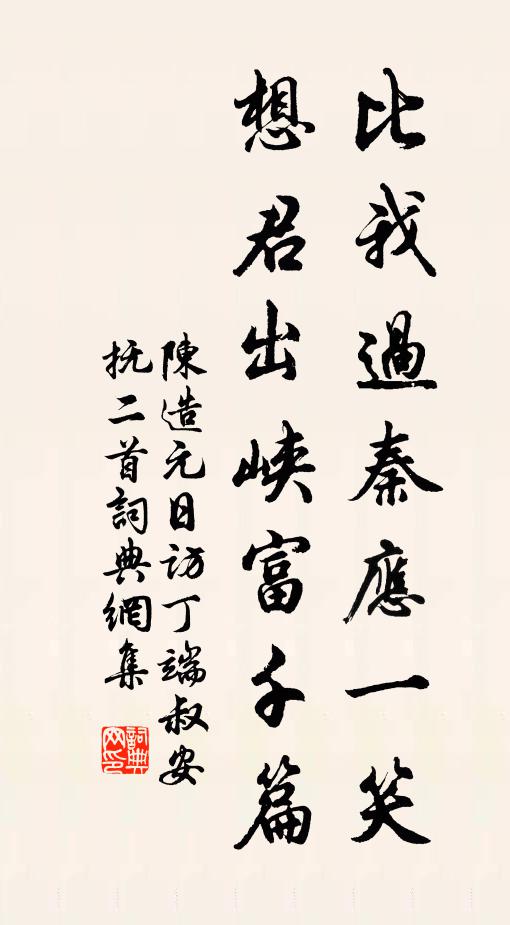 比我過秦應一笑
想君出峽富千篇
陳造元日訪丁端叔安
抚二首詞典網集
詞典
网印